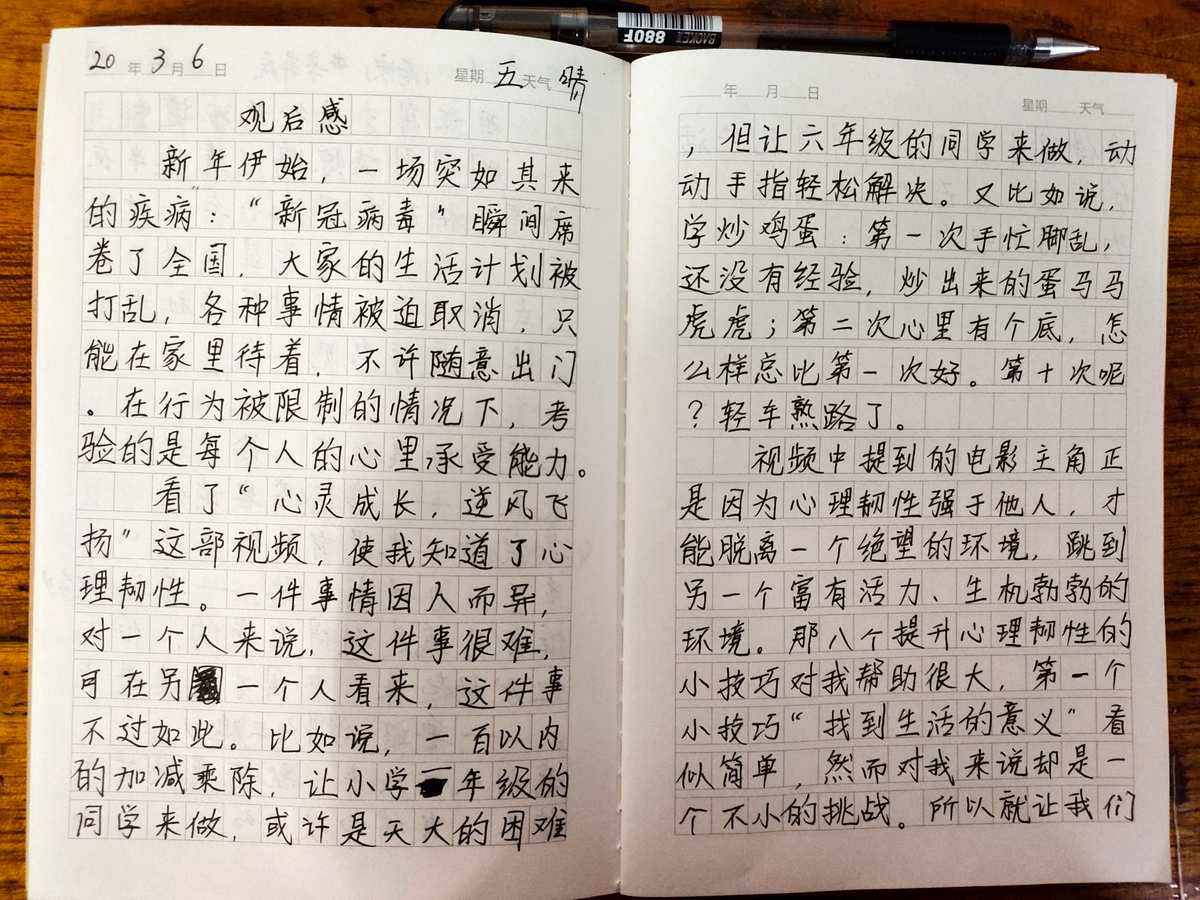 BAOKE 880F
20年3月6日 星期五天气晴
观后感
新年伊始，一场突如其来
的疾病："新冠病毒"瞬间席
卷了全国，大家的生活计划被
打乱，各种事情被迫取消，只
能在家里待着，不许随意出门
。在行为被限制的情况下，考
验的是每个人的心里承受能力。
看了"心灵成长，逆风飞
扬"这部视频，使我知道了心
理韧性。一件事情因人而异，
对一个人来说，这件事很难，
可在另一个人看来，这件事
不过如此。比如说，一百以内
的加减乘除，让小学一年级的
同学来做，或许是天大的困难
年 月 日 星期 天气
，但让六年级的同学来做，动
动手指轻松解决。又比如说，
学炒鸡蛋：第一次手忙脚乱，
还没有经验，炒出来的蛋马马
虎虎；第二次心里有个底，怎
么样总比第一次好。第十次呢
？轻车熟路了。
视频中提到的电影主角正
是因为心理韧性强于他人，才
能脱离一个绝望的环境，跳到
另一个富有活力、生机勃勃的
环境。那八个提升心理韧性的
小技巧对我帮助很大，第一个
小技巧"找到生活的意义"看
似简单，然而对我来说却是一
个不小的挑战。所以就让我们